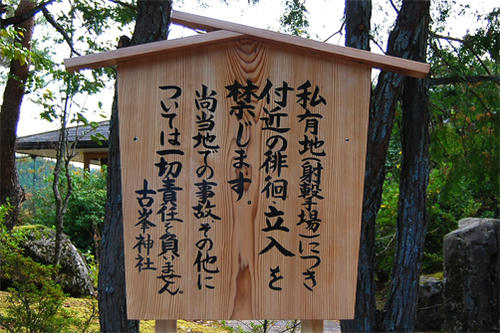 私有地(射撃場)につき
付近の徘徊・立入を
禁じます。
尚当地での事故その他に
ついては一切責任を負いません。
古峯神社